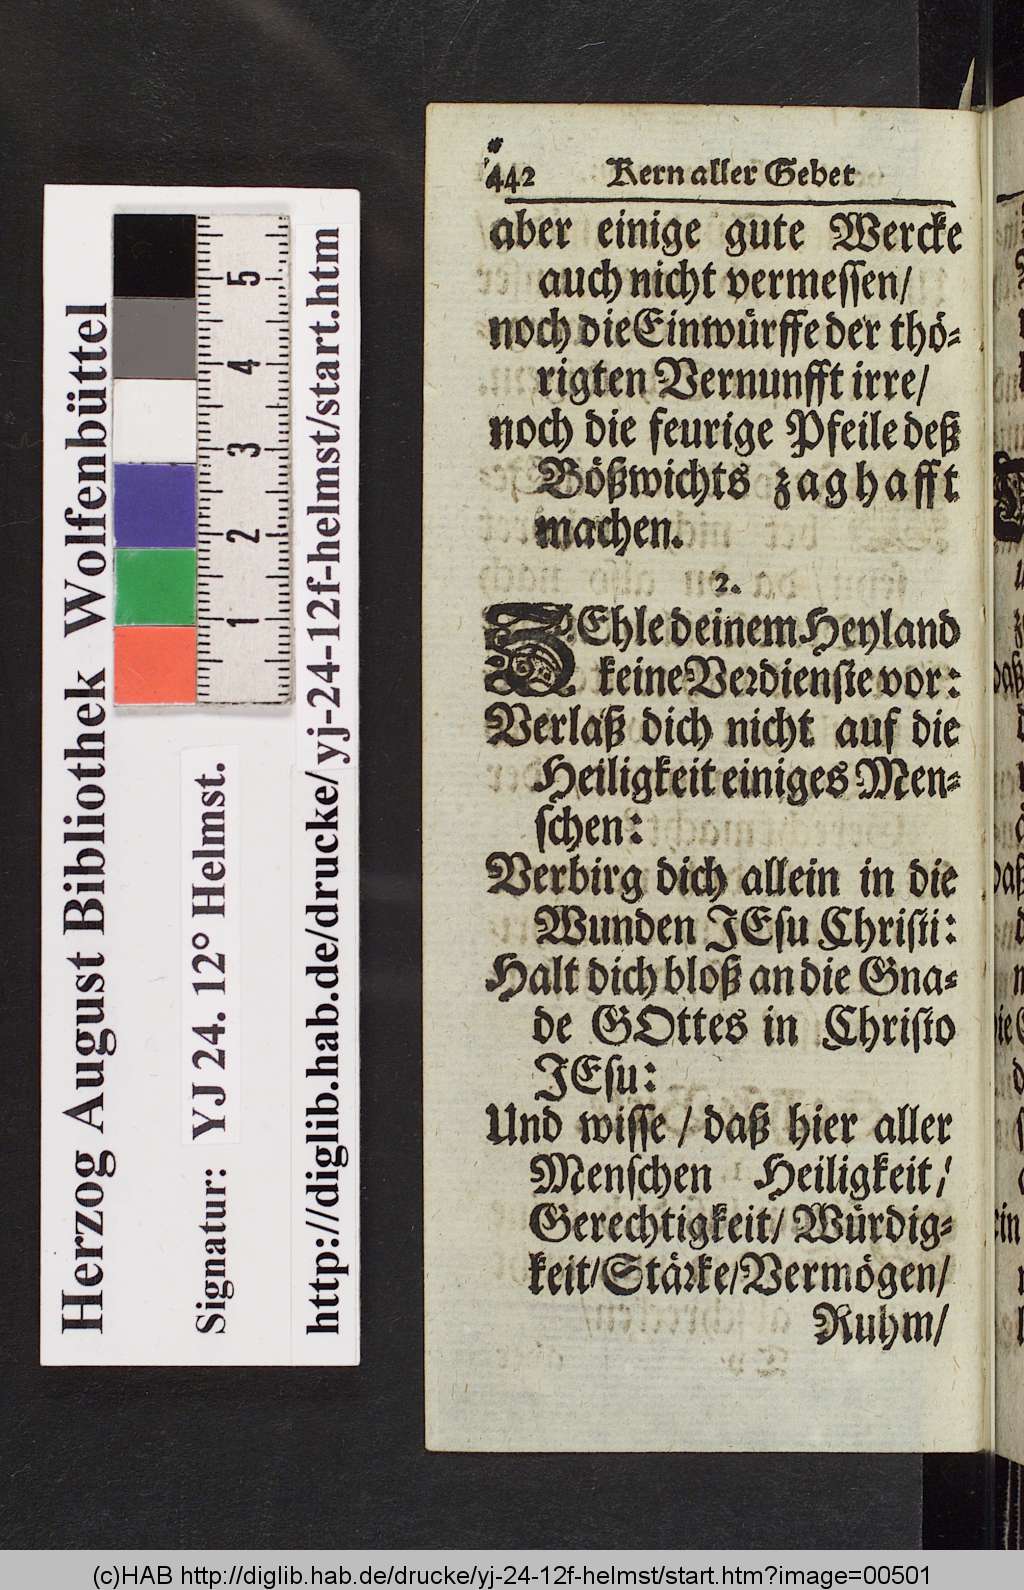 442 Kern aller Gebet
aber einige gute Wercke
auch nicht vermessen/
noch die Einwürffe der thö-
rigten Vernunfft irre/
noch die feurige Pfeile deß
Bößwichts zaghafft
machen.
2.
Ehle deinem Heyland
keine Verdienste vor:
Verlaß dich nicht auf die
Heiligkeit einiges Men-
schen:
Verbirg dich allein in die
Wunden JEsu Christi:
Halt dich bloß an die Gna-
de GOttes in Christo
JEsu:
Und wisse / daß hier aller
Menschen Heiligkeit/
Gerechtigkeit/ Würdig-
keit/ Stärke/ Vermögen/
Ruhm/
Herzog August Bibliothek Wolfenbüttel
Signatur: YJ 24. 12° Helmst.
http://diglib.hab.de/drucke/yj-24-12f-helmst/start.htm
5
4
3
2
1
(c)HAB http://diglib.hab.de/drucke/yj-24-12f-helmst/start.htm?image=00501